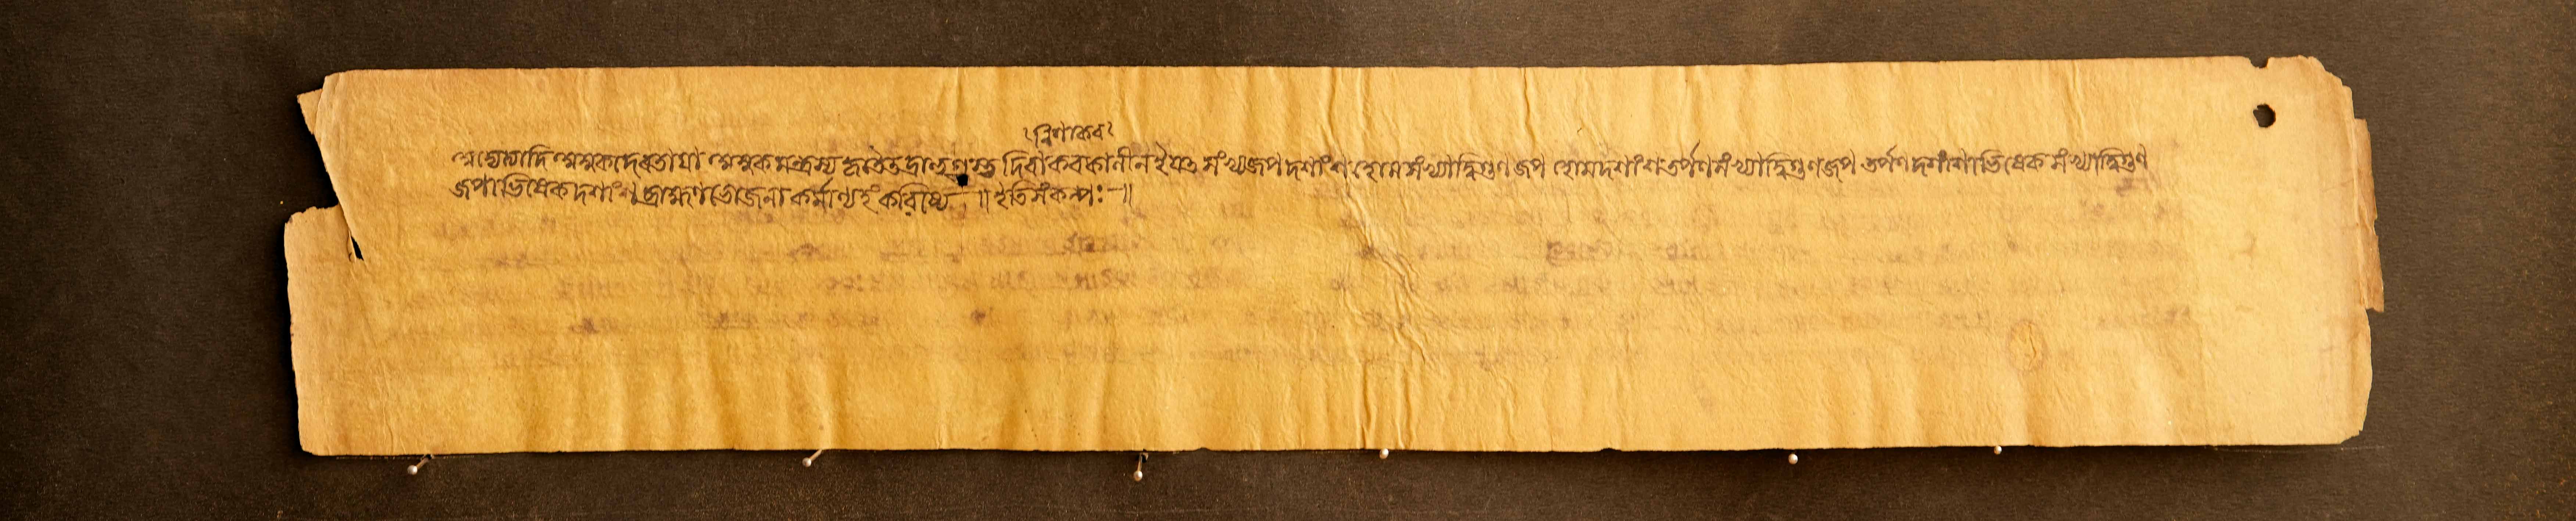 নিশাকর
অদ্যেত্যাদি অমুকদেবতায়া অমুকমন্ত্রস্য কৃতৈতদ্রাহুগ্রস্ত দিবাকরকালীন ইয়ৎ সংখ্যজপ দশাংশ হোমসংখ্যাদ্বিগুণ জপ হোমদশাংশ তর্পণসংখ্যাদ্বিগুণজপ তর্পণ দশাংশাভিষেক সংখ্যাদ্বিগুণ
জপাভিষেক দশাংশ ব্রাহ্মণভোজনা কর্মাণ্যহং করিষ্যে ॥ ইতি সংকল্পঃ ॥